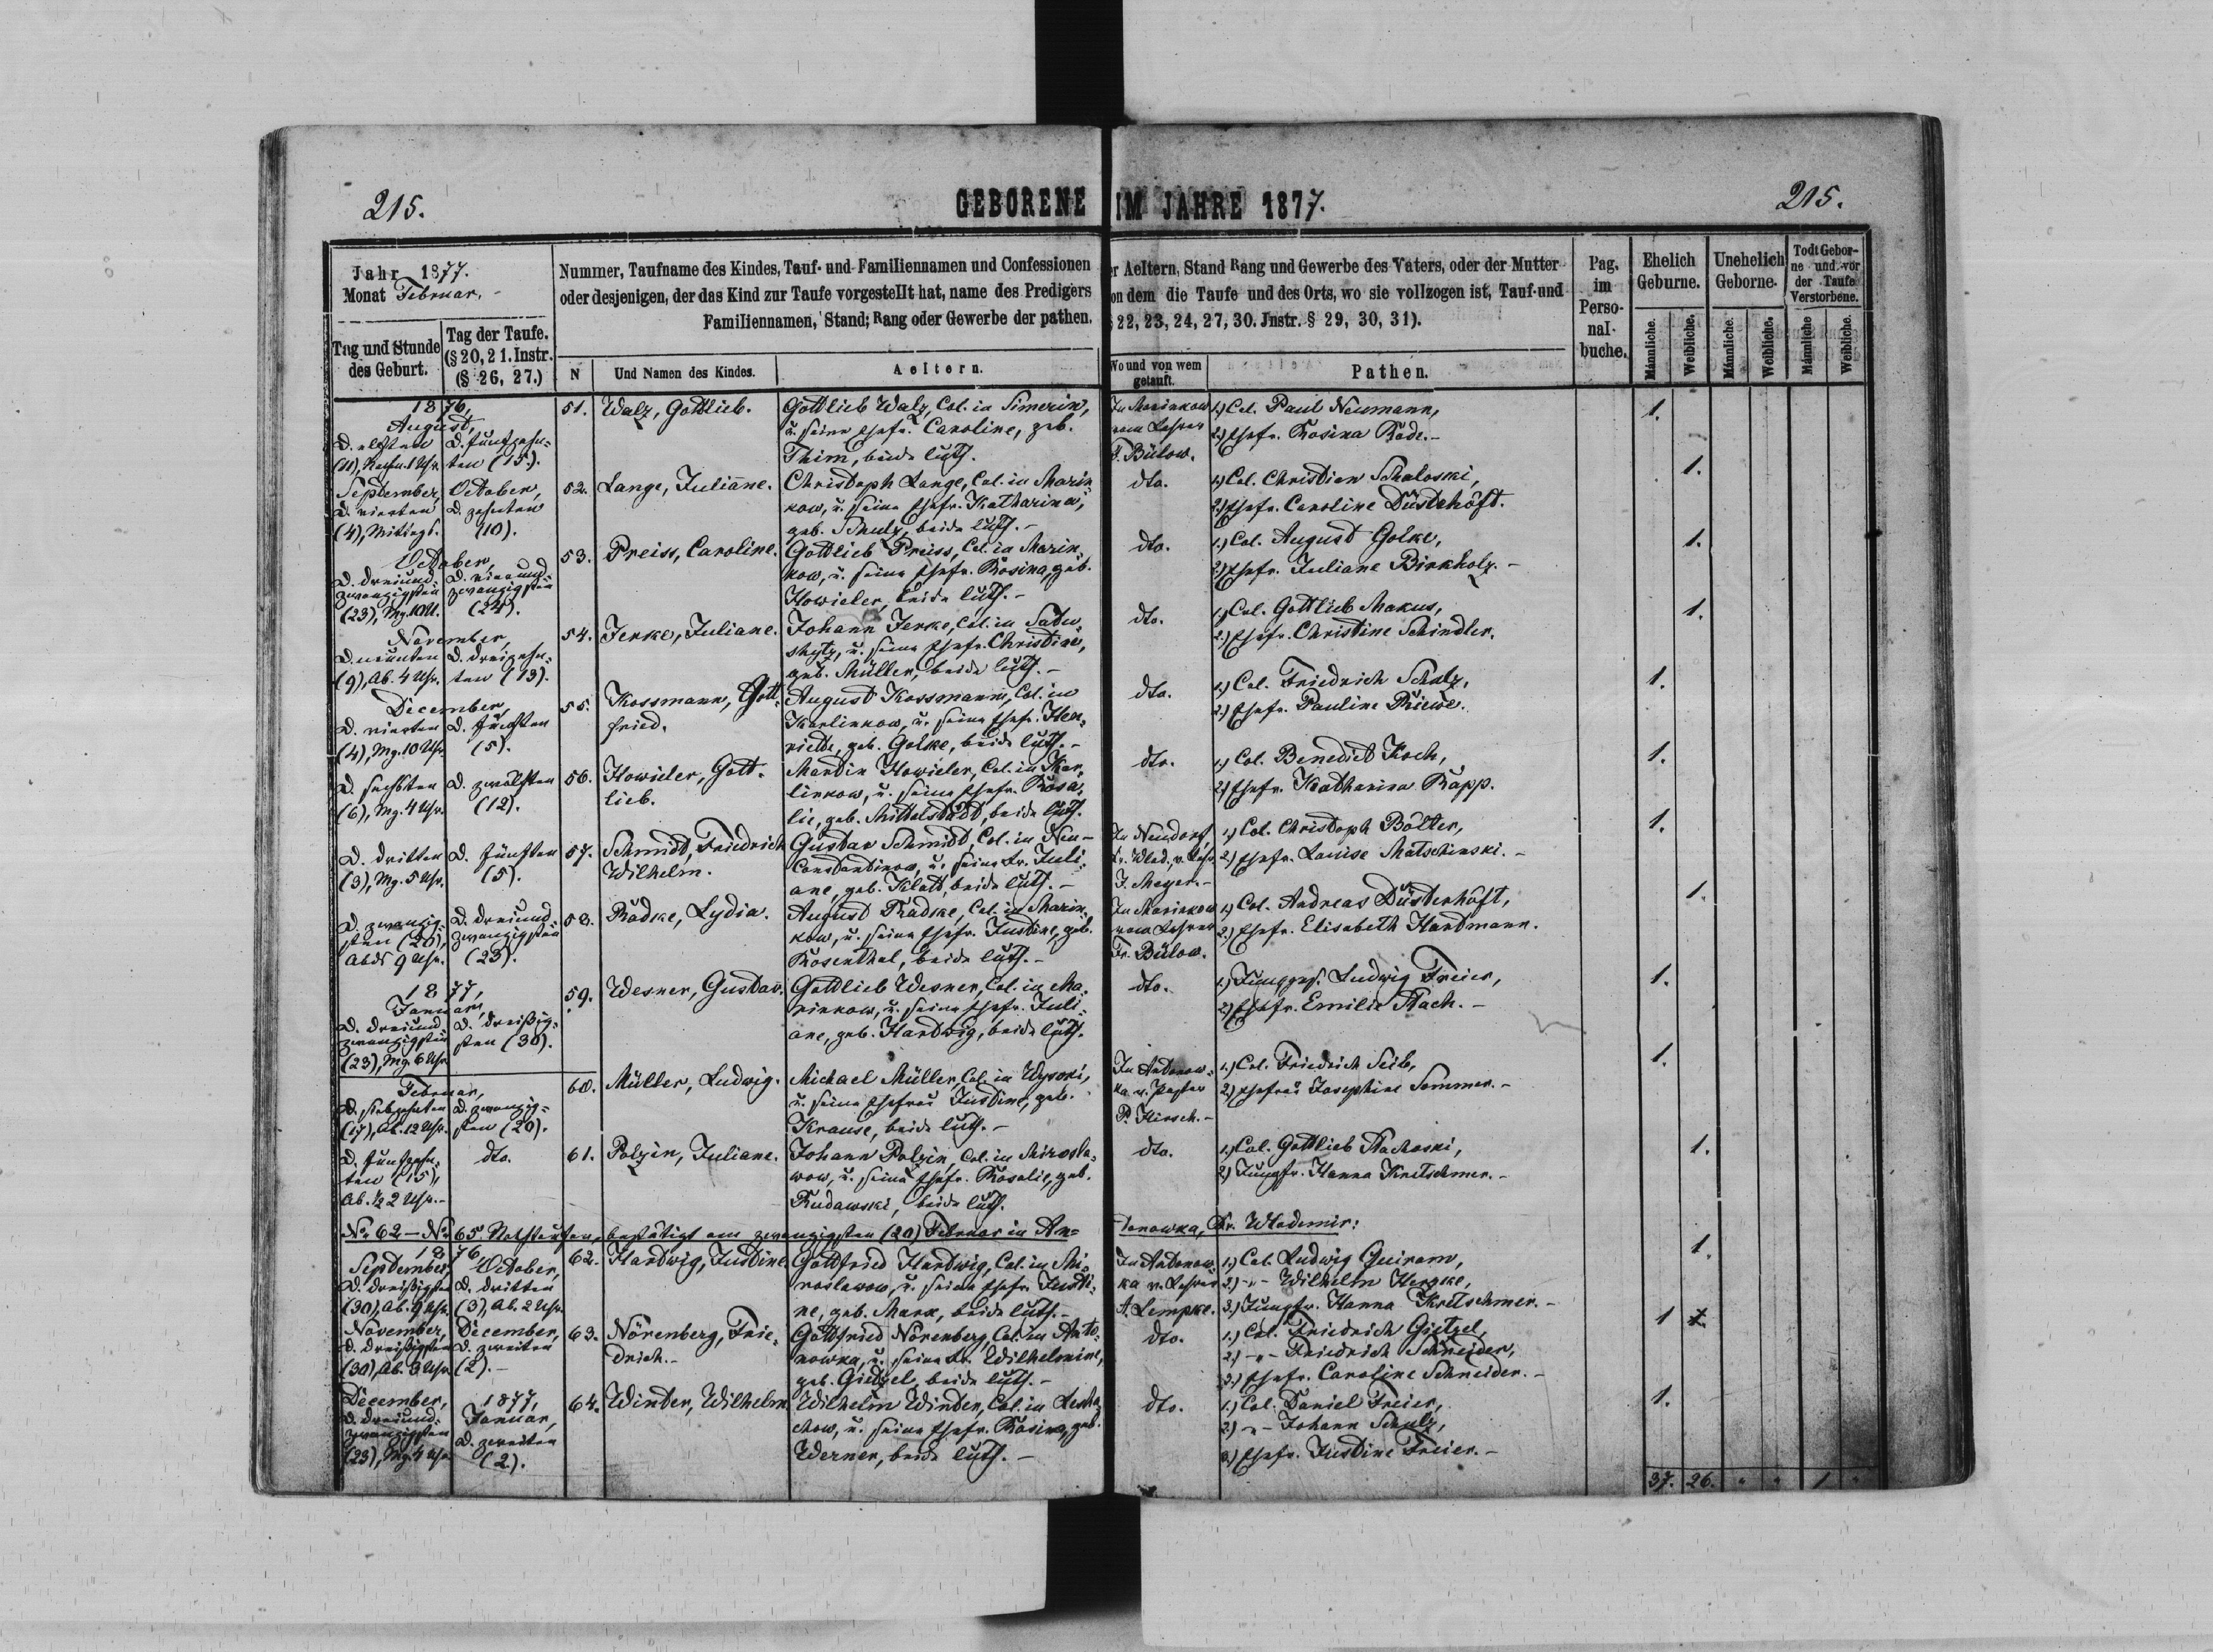 215.
GEBORENE IM JAHRE 1877.
215.
Jahr 1877.
Monat Februar.
Tag und Stunde des Geburt.
Tag der Taufe.
(§ 20, 21. Instr.
(§ 26, 27.)
Nummer, Taufname des Kindes, Tauf- und Familiennamen und Confessionen
er Aeltern, Stand Rang und Gewerbe des Vaters, oder der Mutter
oder desjenigen, der das Kind zur Taufe vorgestellt hat, name des Predigers
on dem die Taufe und des Orts, wo sie vollzogen ist, Tauf-und
Familiennamen, Stand; Rang oder Gewerbe der pathen.
§ 22, 23, 24, 27, 30. Jnstr. § 29, 30, 31).
N
Und Namen des Kindes.
Aeltern.
Wo und von wem getauft.
Pathen.
Pag. im Perso-nal-buche.
Ehelich Geburne.
Unehelich Geborne.
Todt Gebor-ne und vor der Taufe Verstorbene.
Männliche.
Weibliche.
Männliche.
Weibliche.
Männliche
Weibliche.
1876,
August,
D. elften
(11), Nachm. 1 Uhr.
D. fünfzehn-
ten (15).
51.
Walz, Gottlieb.
Gottlieb Walz, Col. in Simerin,
u. seine Ehefr. Caroline, geb.
Thim, beide luth.
In Marinkow
vom Lehrer
F. Bülow.
1.) Col. Paul Neumann,
2.) Ehefr. Rosina Rode.-
1.
September,
D. vierten
(4), Mittags.
October,
D. zehnten
(10).
52.
Lange, Juliane.
Christoph Lange, Col. in Marin
kow, u. seine Ehefr. Katharina,
geb. Schulz, beide luth.-
dto.
1.) Col. Christian Schaloski,
2.) Ehefr. Caroline Düsterhöft.
1.
October,
D. dreiund-
zwanzigsten
(23), Mg. 10 U.
D. vierund-
zwanzigsten
(24).
53.
Preiss, Caroline.
Gottlieb Preiss, Col. in Marin-
kow, u. seine Ehefr. Rosina, geb.
Howieler, beide luth.-
dto.
1.) Col. August Golke,
2.) Ehefr. Juliane Birkholz.-
1.
November,
D. neunten
(9), Ab. 4 Uhr.
D. dreizehn-
ten (13).
54.
Jenke, Juliane.
Johann Jenke, Col. in Sadu-
shytz, u. seine Ehefr. Christine,
geb. Müller, beide luth.-
dto.
1.) Col. Gottlieb Makus,
2.) Ehefr. Christine Schindler.
1.
December,
D. vierten
(4), Mg. 10 Uhr.
D. fünften
(5).
55.
Kossmann, Gott-
fried.
August Kossmann, Col. in
Karlinkow, u. seine Ehefr. Hen-
riette, geb. Golke, beide luth.-
dto.
1.) Col. Friedrich Schulz,
2.) Ehefr. Pauline Riewe.
1.
D. sechsten
(6), Mg. 4 Uhr.
D. zwölften
(12).
56.
Howieler, Gott-
lieb.
Martin Howieler, Col. in Kar-
linkow, u. seine Ehefr. Rosa-
lie, geb. Mittelstädt, beide luth.
dto.
1.) Col. Benedict Koch,
2.) Ehefr. Katharina Rapp.
1.
D. dritten
(3), Mg. 5 Uhr.
D. fünften
(5).
57.
Schmidt, Friedrich
Wilhelm.
Gustav Schmidt, Col. in Neu-
Constantinow, u. seine Fr. Juli-
ane, geb. Klatt, beide luth.-
In Neudorf,
Kr. Wlad., v. Lehr.
J. Meyer.-
1.) Col. Christoph Bölter,
2.) Ehefr. Louise Matschinski.-
1.
D. zwanzig-
sten (20),
Abds 9 Uhr.
D. dreiund-
zwanzigsten
(23).
58.
Radke, Lydia.
August Radke, Col. in Marin-
kow, u. seine Ehefr. Justine, geb.
Rosenthal, beide luth.-
In Marinkow
vom Lehrer
Fr. Bülow.
1.) Col. Andreas Düsterhöft,
2.) Ehefr. Elisabeth Hartmann.
1.
1877,
Januar,
D. dreiund-
zwanzigsten
(23), Mg. 6 Uhr.
D. dreißig-
sten (30).
59.
Wesner, Gustav.
Gottlieb Wesner, Col. in Ma-
rinkow, u. seine Ehefr. Juli-
ane, geb. Hartwig, beide luth.
dto.
1.) Jungges. Ludwig Freier,
2.) Ehefr. Emilie Stach.-
1.
Februar,
D. siebzehnten
(17), Ab. 12 Uhr.
D. zwanzig-
sten (20).
60.
Müller, Ludwig.
Michael Müller, Col. in Wysoki,
u. seine Ehefrau Justine, geb.
Krause, beide luth.-
In Antonow-
ka v. Pastor
P. Hirsch.-
1.) Col. Friedrich Seib,
2.) Ehefrau Josephine Sommer.-
1.
D. fünfzehn-
ten (15),
Ab. ½ 2 Uhr.-
dto.
61.
Polzin, Juliane.
Johann Polzin, Col. in Mirosla-
wow, u. seine Ehefr. Rosalie, geb.
Rudawski, beide luth.
dto.
1.) Col. Gottlieb Stachoski,
2.) Jungfr. Hanna Kretschmer.-
1.
No 62 - No 65 Nothtaufen, bestätigt am zwanzigsten (20) Februar in An-
tonowka, Kr. Wlodomir:
1876,
September,
D. dreißigsten
(30), Ab. 9 Uhr.
October,
D. dritten
(3), Ab. 2 Uhr.
62.
Hartwig, Justine
Gottfried Hartwig, Col. in Mi-
roslawow, u. seine Ehefr. Justi-
ne, geb. Marx, beide luth.-
In Antonow-
ka v. Lehrer
A. Lempke.
1.) Col. Ludwig Quiram,
2.) -"- Wilhelm Herzke,
3.) Jungfr. Hanna Kretschmer.-
1.
November,
D. dreißigsten
(30), Ab. 3 Uhr.
December,
D. zweiten
(2).-
63.
Nörenberg, Frie-
drich.-
Gottfried Nörenberg, Col. in Anto-
nowka, u. seine Fr. Wilhelmine,
geb. Gietzel, beide luth.-
dto.
1.) Col. Friedrich Gietzel,
2.) -"- Friedrich Schneider,
3.) Ehefr. Caroline Schneider.-
1
December,
D. dreiund-
zwanzigsten
(23), Mg. 4 Uhr.
1877,
Januar,
D. zweiten
(2).
64.
Winter, Wilhelm.
Wilhelm Winter, Col. in
chow, u. seine Ehefr. Rosina, geb.
Werner, beide luth.-
dto.
1.) Col. Daniel Freier,
2.) -"- Johann Schulz,
3.) Ehefr. Justine Freier.-
1.
37. 26. " " 1 "